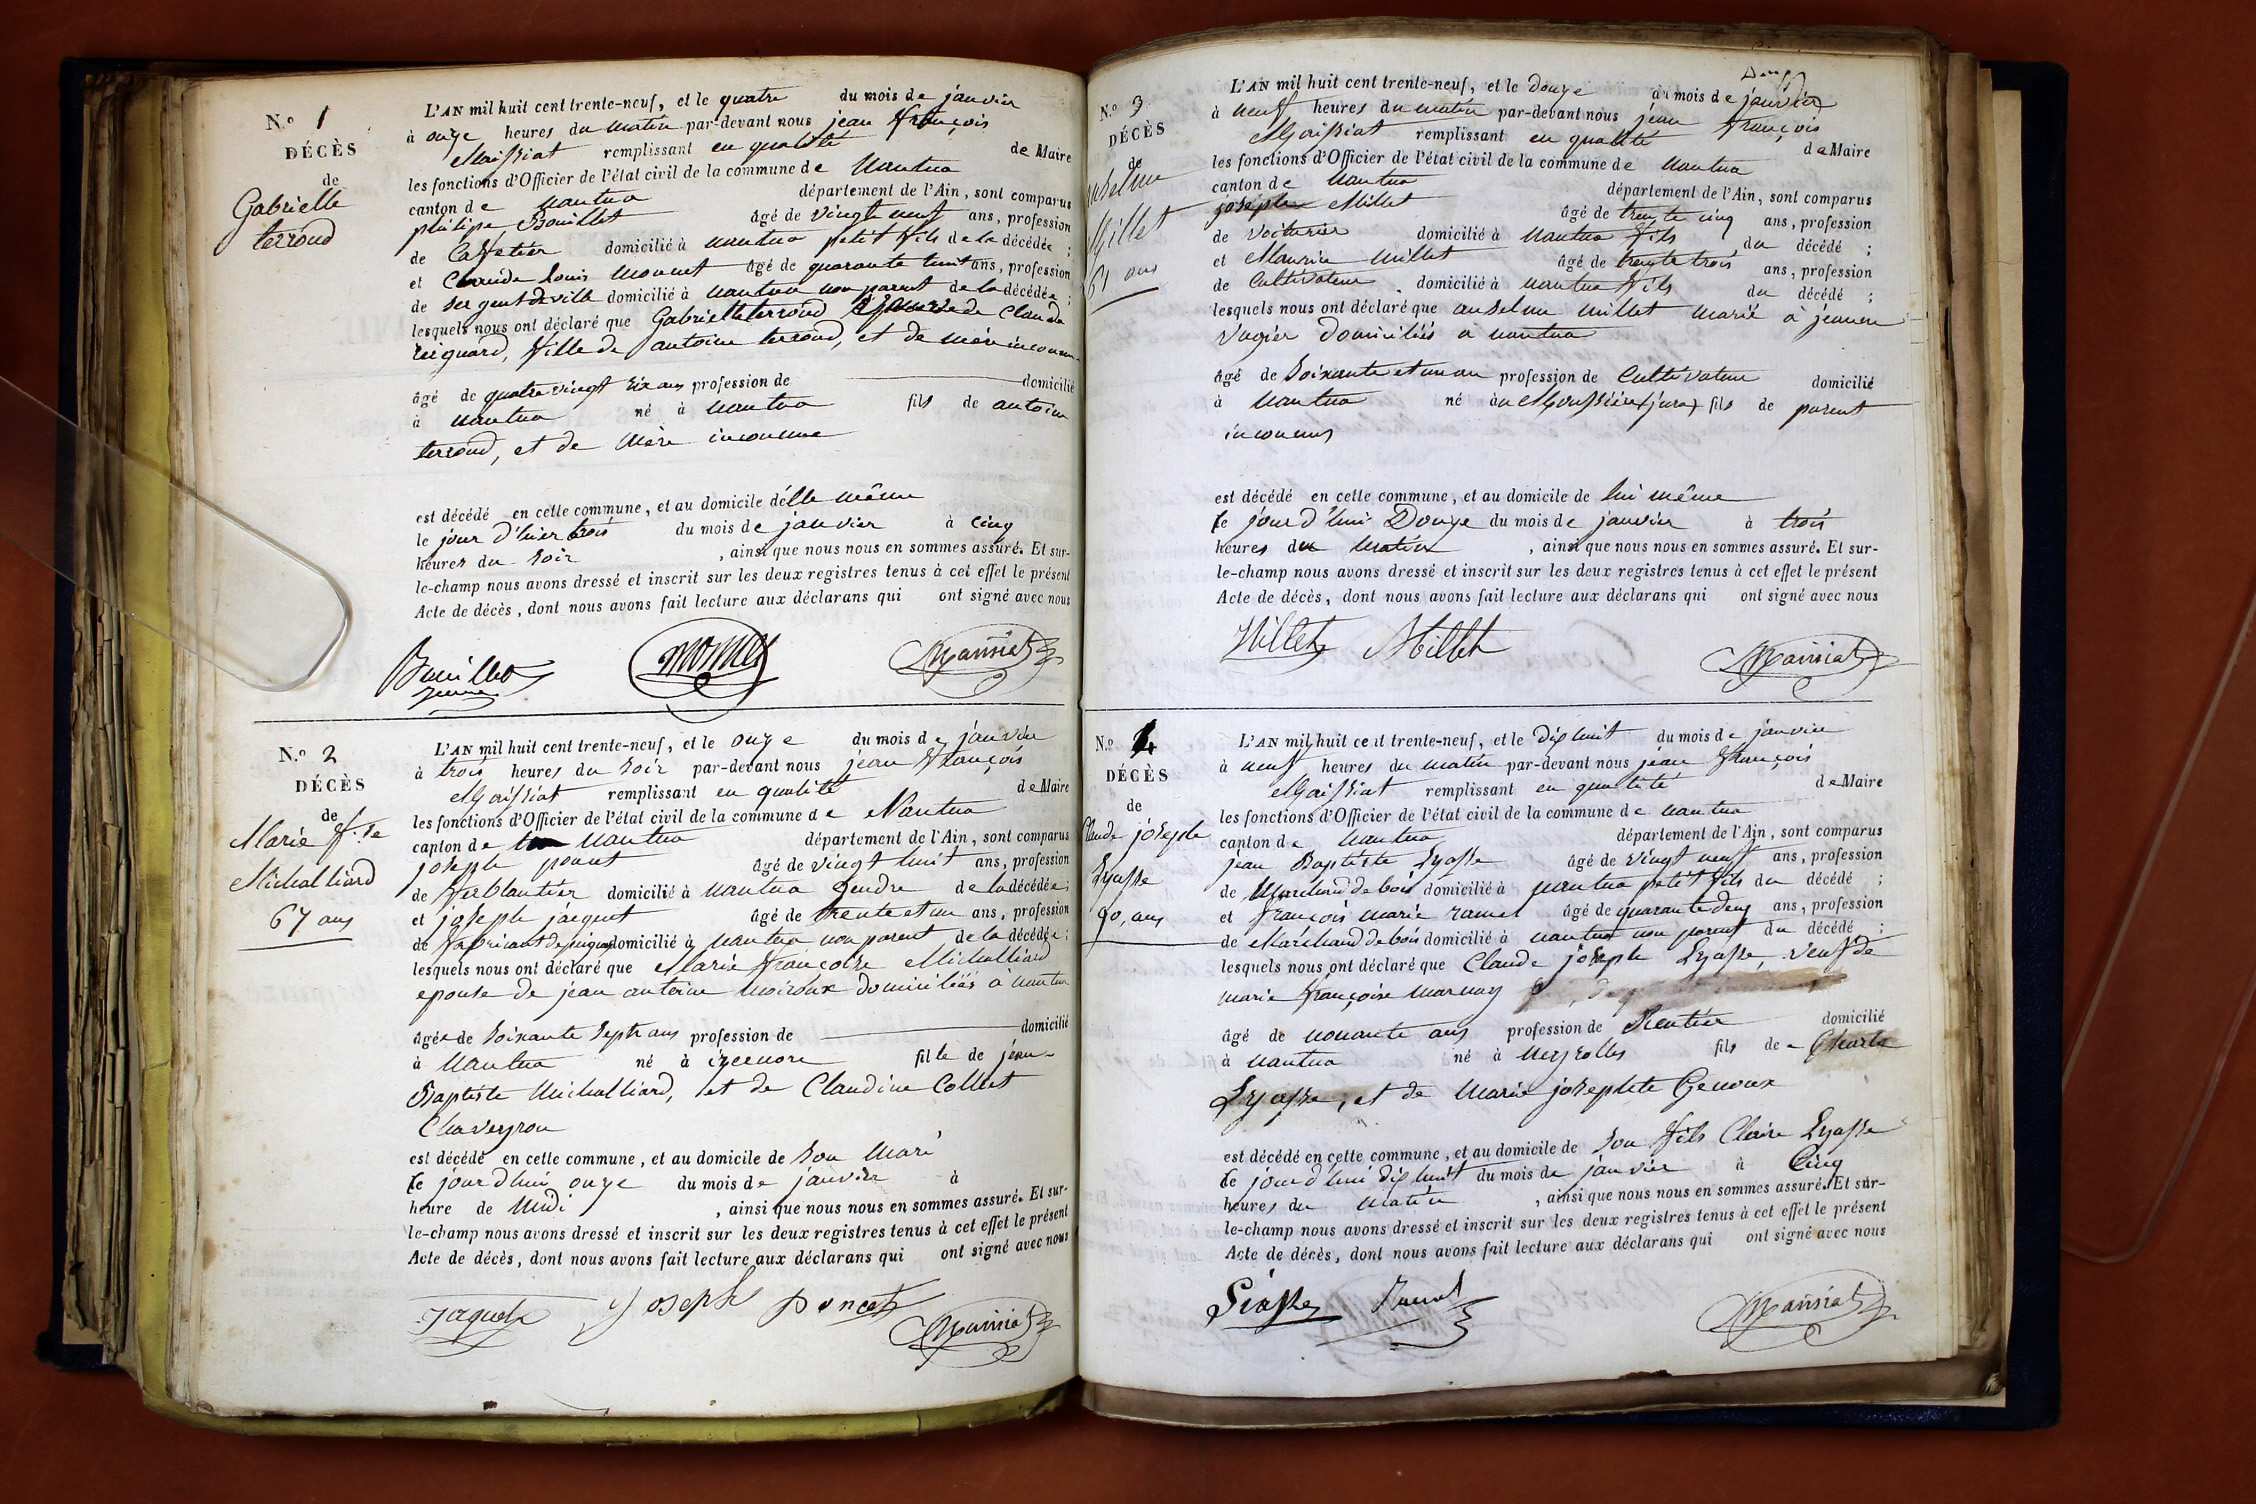 N.o 1
DÉCÈS
de
Gabrielle
terroud
L'AN mil huit cent trente-neuf, et le quatre du mois de janvier
à onze heures du matin par-devant nous jean françois
Maissiat remplissant en qualité de Maire
les fonctions d'Officier de l'état civil de la commune de Nantua
canton de nantua département de l'Ain, sont comparus
philipe Bouillet âgé de vingt neuf ans, profession
de Cafetier domicilié à nantua petit fils de la décédée ;
et Claude Louis Monnet âgé de quarante huit ans, profession
de sergent de ville domicilié à nantua non parent de la décédée ;
lesquels nous ont déclaré que Gabrielle terroud de Claude
fille de antoine terroud, et de mère inconnue
âgé de quatre vingt six ans profession de domicilié
à nantua né à nantua fils de antoine
terroud, et de mère inconnue
est décédé en cette commune, et au domicile d'elle même
le jour d'hier trois du mois de janvier à cinq
heures du soir , ainsi que nous nous en sommes assuré. Et sur-
le-champ nous avons dressé et inscrit sur les deux registres tenus à cet effet le présent
Acte de décès, dont nous avons fait lecture aux déclarans qui ont signé avec nous
Bouillet monnet Maissiat
jeune
N.o 2
DÉCÈS
de
Marie f.se
Michalliard
67 ans
L'AN mil huit cent trente-neuf, et le onze du mois de janvier
à trois heures du soir par-devant nous jean françois
Maissiat remplissant en qualité de Maire
les fonctions d'Officier de l'état civil de la commune de Nantua
canton de nantua département de l'Ain, sont comparus
joseph poncet âgé de vingt huit ans, profession
de ferblantier domicilié à nantua gendre de la décédée ;
et joseph jacquet âgé de trente et un ans, profession
de fabricant de peignes domicilié à nantua non parent de la décédée ;
lesquels nous ont déclaré que Marie françoise Michalliard
epouse de jean antoine moiroux domiciliés à nantua
âgée de soixante sept ans profession de domicilié
à nantua né à izernore fille de jean-
Baptiste Michalliard, et de Claudine Collet
Chaveyron
est décédé en cette commune, et au domicile de son mari
le jour d'hui onze du mois de janvier à
heure de midi , ainsi que nous nous en sommes assuré. Et sur-
le-champ nous avons dressé et inscrit sur les deux registres tenus à cet effet le présent
Acte de décès, dont nous avons fait lecture aux déclarans qui ont signé avec nous
jaquet joseph poncet Maissiat
N.o 3
DÉCÈS
de
anselme
Millet
61 ans
L'AN mil huit cent trente-neuf, et le douze du mois de janvier
à neuf heures du matin par-devant nous jean françois
Maissiat remplissant en qualité de Maire
les fonctions d'Officier de l'état civil de la commune de nantua
canton de nantua département de l'Ain, sont comparus
joseph Millet âgé de trente cinq ans, profession
de voiturier domicilié à nantua fils du décédé ;
et Maurice millet âgé de trente trois ans, profession
de Cultivateur domicilié à nantua fils du décédé ;
lesquels nous ont déclaré que anselme millet marié à jeanne
Vugier domiciliés à nantua
âgé de soixante et un an profession de Cultivateur domicilié
à nantua né à (jura) fils de parent
inconnus
est décédé en cette commune, et au domicile de lui même
le jour d'hui Douze du mois de janvier à trois
heures du matin , ainsi que nous nous en sommes assuré. Et sur-
le-champ nous avons dressé et inscrit sur les deux registres tenus à cet effet le présent
Acte de décès, dont nous avons fait lecture aux déclarans qui ont signé avec nous
Millet Millet Maissiat
N.o 4
DÉCÈS
de
Claude joseph
Lyasse
90, ans
L'AN mil huit cent trente-neuf, et le dix huit du mois de janvier
à neuf heures du matin par-devant nous jean françois
Maissiat remplissant en qualité de Maire
les fonctions d'Officier de l'état civil de la commune de nantua
canton de nantua département de l'Ain, sont comparus
jean Baptiste Lyasse âgé de vingt neuf ans, profession
de Marchand de bois domicilié à nantua petit fils du décédé ;
et françois marie ramel âgé de quarante deux ans, profession
de Marchand de bois domicilié à nantua non parent du décédé ;
lesquels nous ont déclaré que Claude joseph Lyasse, veuf de
marie françoise marnay
âgé de nonante ans profession de Rentier domicilié
à nantua né à Neyrolles fils de Charles
Lyasse, et de Marie josephte Genoux
est décédé en cette commune, et au domicile de son fils Claire Lyasse
le jour d'hui dix huit du mois de janvier à Cinq
heures du matin , ainsi que nous nous en sommes assuré. Et sur-
le-champ nous avons dressé et inscrit sur les deux registres tenus à cet effet le présent
Acte de décès, dont nous avons fait lecture aux déclarans qui ont signé avec nous
Liasse Ramel Maissiat